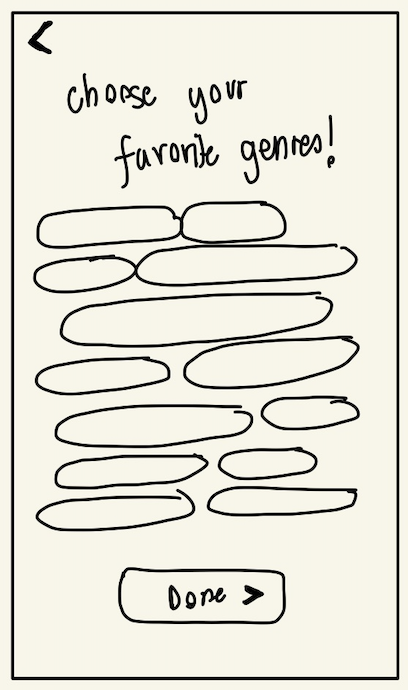 choose your
favorite genres!
Done >